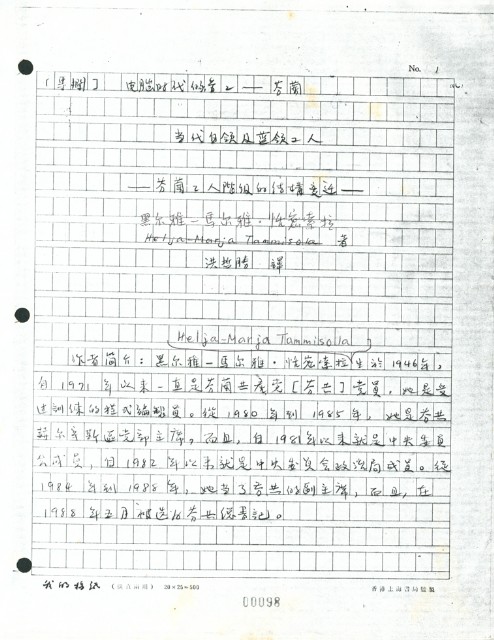 No. 1
［專欄］ 电腦时代的勞工——芬蘭
当代白领及蓝领工人
——芬蘭工人階級的结構变迁——
黑尔雅－馬尔雅·
Helja-Marja Tammisola 著
洪哲勝 譯
Helja-Marja Tammisola
作者简介：黑尔雅－馬尔雅· 生於1946年，
自1971年以來一直是芬蘭共產党［芬共］党員。她是受
过訓练的程式編寫員。從1980年到1985年，她是芬共
赫尔辛斯區党部主席，而且，自1981年以来就是中央委員
会成員，自1982年以来就是中央委員会政治局成員。從
1984年到1988年，她当了芬共的副主席，而且，在
1988年五月被选为芬共總書記。
我的稿纸 20×25＝500 香港上海書局監製
00098